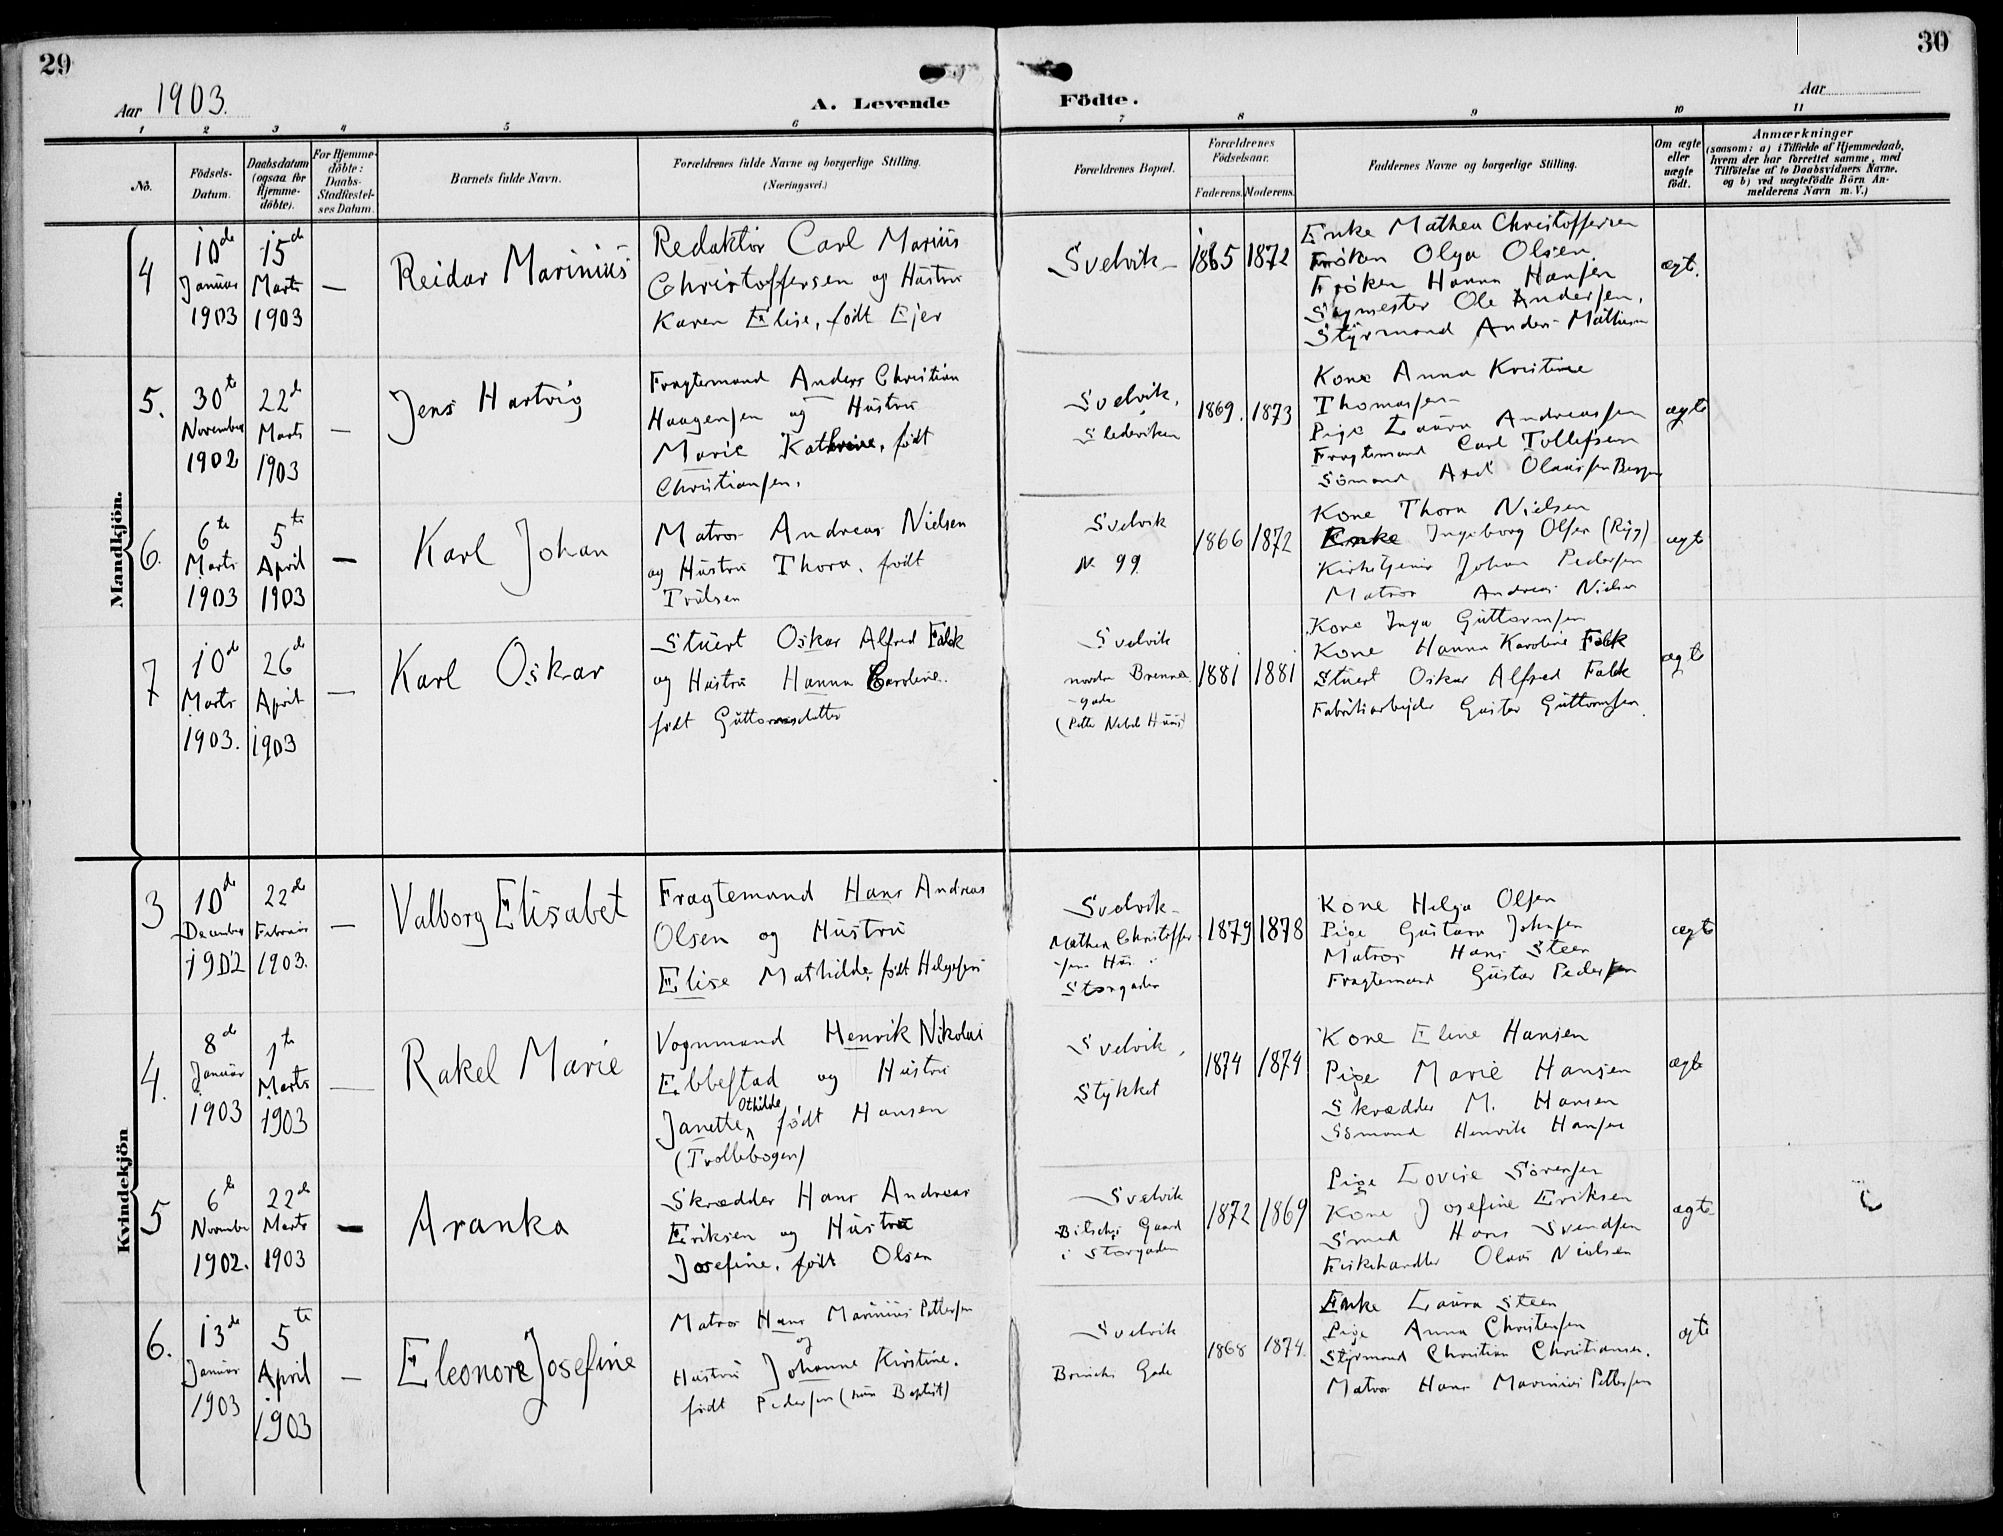 29
30
Aar 1903.
A. Levende Födte.
Aar
1 2 3 4 5 6 7 8 9 10 11
No.
Födsels-
Datum.
Daabsdatum
(ogsaa for
Hjemme-
döbte).
For Hjemme-
döbte:
Daabs-
Stadfæstel-
ses Datum.
Barnets fulde Navn.
Forældrenes fulde Navne og borgerlige Stilling.
(Næringsvei.)
Forældrenes Bopæl.
Forældrenes
Födselsaar.
Faderens. Moderens.
Faddernes Navne og borgerlige Stilling.
Om ægte
eller
uægte
födt.
Anmærkninger
(saasom: a) i Tilfælde af Hjemmedaab,
hvem der har forrettet samme, med
Tilföielse af to Daabsvidners Navne.
og b) ved uægtefödte Börn An-
melderens Navn m. V.)
Mandkjön.
4
10de
Januar
1903
15de
Marts
1903
—
Reidar Marinius
Redaktör Carl Marius
Christoffersen og Hustru
Karen Elise, födt Ejer
Svelvik
1865
1872
Enke Mathea Christoffersen
Fröken Olga Olsen.
Fröken Hanna Hansen
Sagmester Ole Andersen,
Styrmand Anders Mathisen
ægt.
5.
30te
November
1902
22de
Marts
1903
—
Jens Hartvig
Fragtemand Anders Christian
Haagensen og Hustru
Marie Kathrine, födt
Christiansen.
Svelvik,
Slederiken
1869.
1873
Kone Anna Kristine
Thomassen
Pige Laura Andreassen
Fragtemand Carl Tollefsen
Sömand Axel Olaussen Bergen
ægte
6.
6te
Marts
1903
5te
April
1903
—
Karl Johan
Matros Andreas Nielsen
og Hustru Thora, födt
Trulsen
Svelvik
N. 99.
1866
1872
Kone Thora Nielsen
Enke Ingeborg Olsen (Ryg)
Kirketjener Johan Pedersen
Matros Andreas Nielsen
ægte
7
10de
Marts
1903.
26de
April
1903
—
Karl Oskar
Stuert Oskar Alfred Falck
og Hustru Hanna Caroline.
födt Guttormsdatter
Svelvik
nordre Brenne
-gade
(Petter Nebels Huus)
1881
1881
Kone Inga Guttormsen
Kone Hanna Karoline Falck
Stuert Oskar Alfred Falck
Fabrikarbejder Gustav Guttormsen.
ægte
Kvindekjön
3
10de
December
1902
22de
Februar
1903.
—
Valborg Elisabet
Fragtemand Hans Andreas
Olsen og Hustru
Elise Mathilde, födt Helgesen
Svelvik
Mathea Christoffer-
sens Hus i
Storgaden
1879
1878
Kone Helga Olsen
Pige Gustava Johnsen
Matros Hans Steen
Fragtemand Gustav Pedersen
ægte
4.
8de
Januar
1903
1te
Marts
1903
—
Rakel Marie
Vognmand Henrik Nikolai
Ebbestad og Hustru
Janette, Othilde födt Hansen
(Trollebogen)
Svelvik,
Stykket
1874
1874
Kone Eline Hansen
Pige Marie Hansen
Skrædder M. Hansen
Sömand Henrik Hansen
ægte
5
6te
November
1902.
22de
Marts
1903
—
Aranka
Skrædder Hans Andreas
Eriksen og Hustru
Josefine, födt Olsen
Svelvik
Bitschs Gaard
i Storgaden
1872
1869
Pige Lovise Sörensen
Kone Josefine Eriksen
Smed Hans Svendsen
Fiskehandler Olaus Nielsen
ægte
6.
13de
Januar
1903
5te
April
1903
—
Eleonore Josefine
Matros Hans Marinius Pettersen
og
Hustru Johanne Kirstine.
födt Pedersen (nu Baptist)
Svelvik
Brinchs Gade
1868
1874.
Enke Laura Steen
Pige Anna Christensen
Styrmand Christian Christiansen.
Matros Hans Marinius Pettersen
ægte